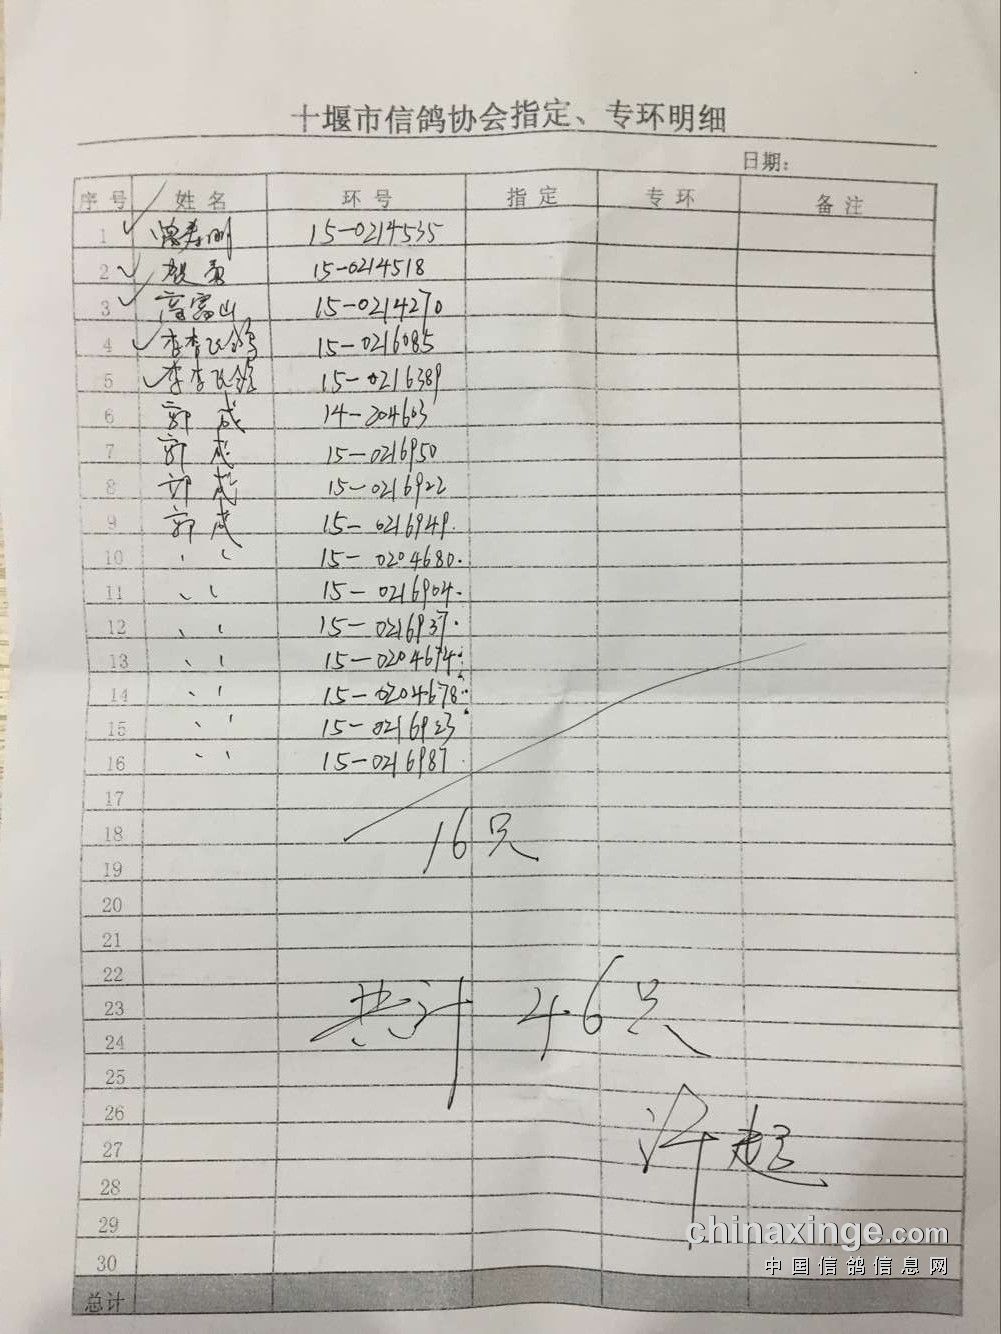 十堰市信鸽协会指定、专环明细
日期：
序号 姓名 环号 指定 专环 备注
1 15-0214535
2 15-0214518
3 高富山 15-0214270
4 李李飞鸽 15-0216085
5 李李飞鸽 15-0216389
6 郭成 14-204603
7 郭成 15-0216950
8 郭成 15-0216922
9 郭成 15-0216949.
10 、、 15-0204680.
11 、、 15-0216904.
12 、、 15-0216937.
13 、、 15-0204674.
14 、、 15-0204678.
15 、、 15-0216923
16 、、 15-0216987
17
18
16只
19
20
21
22
23
共计 46只
24
25
26
27
许超
28
29
30
总计
chinaxinge.com
中国信鸽信息网